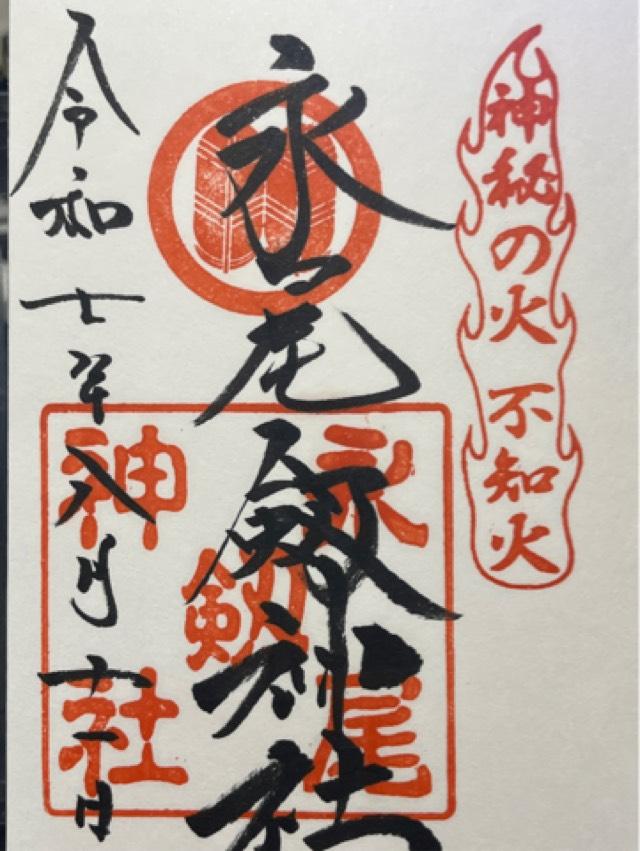 神秘の火 不知火
永尾剱神社
永尾
剱
神社
令和七年八月十一日